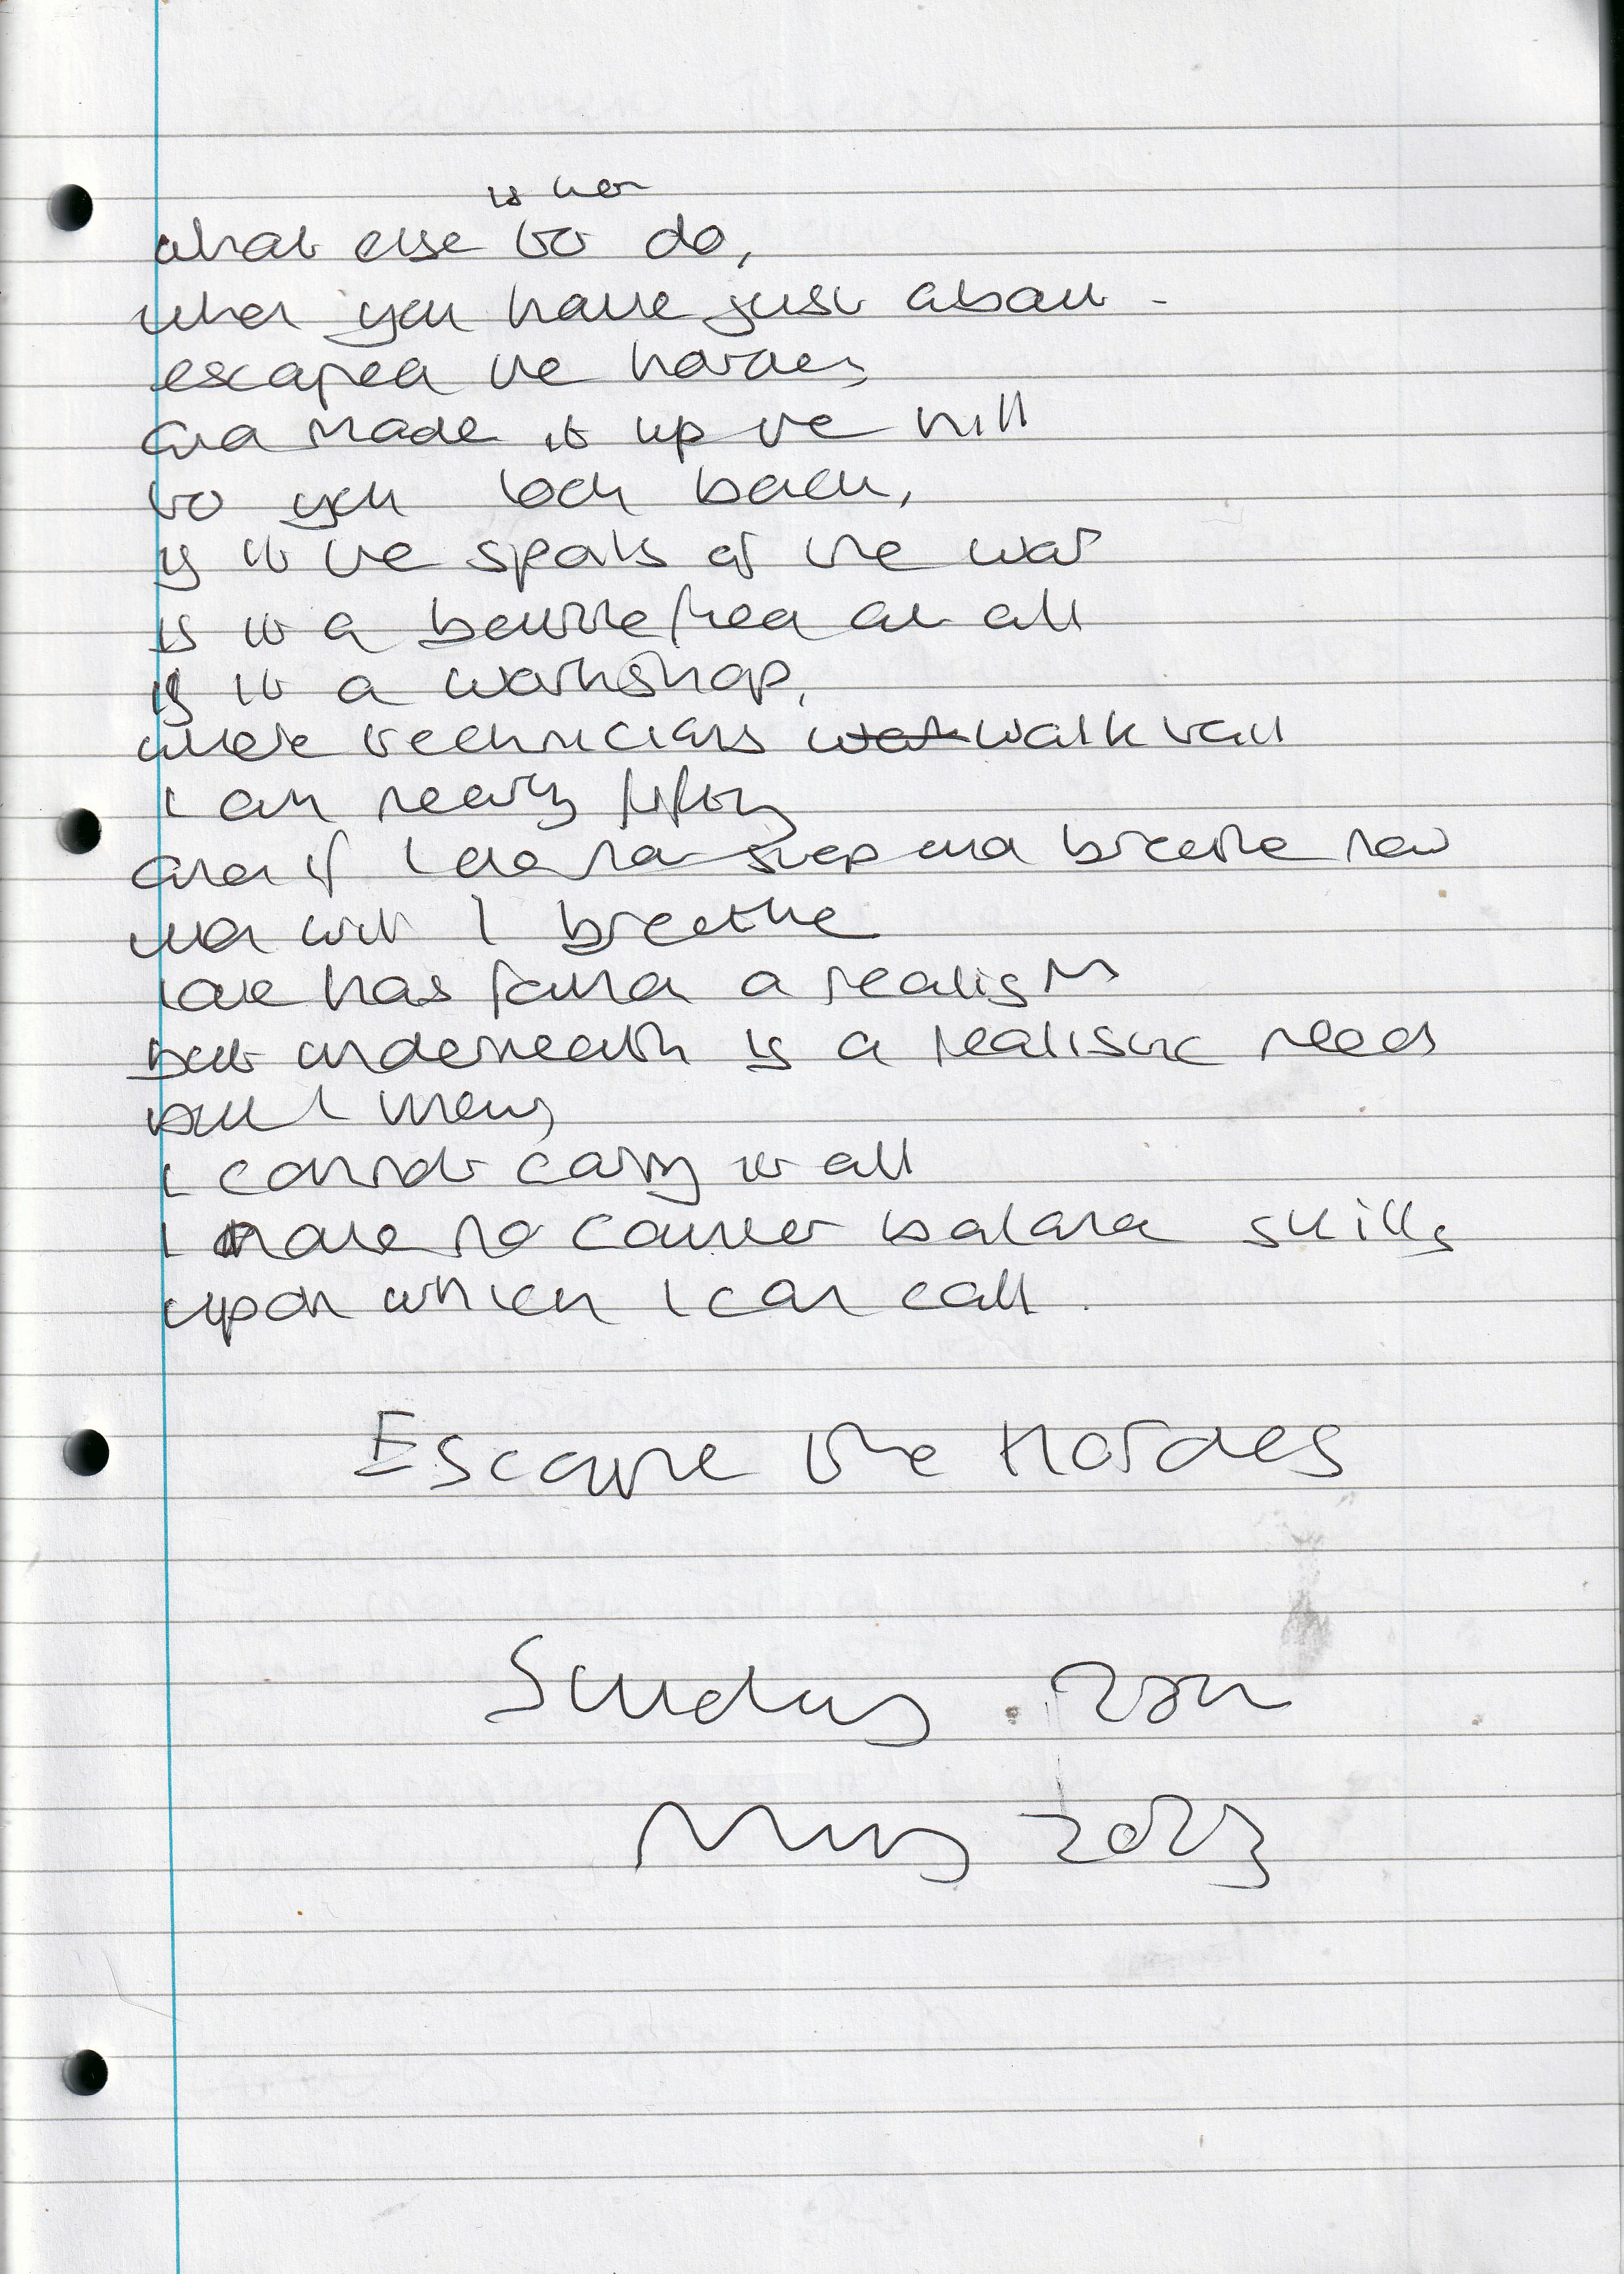 is there
what else to do,
when you have just about -
escaped the hordes
and made it up the hill
do you look back,
is it the spoils of the war
is it a battlefield at all
is it a workshop,
where technicians walk tall
I am nearly fifty
and if I do not stop and breathe now
when will I breathe
love has found a realism
but underneath is a realistic need
but I know,
I cannot carry it all
I have no counter balance skills
upon which I can call.
Escape the Hordes
Sunday
May 2023